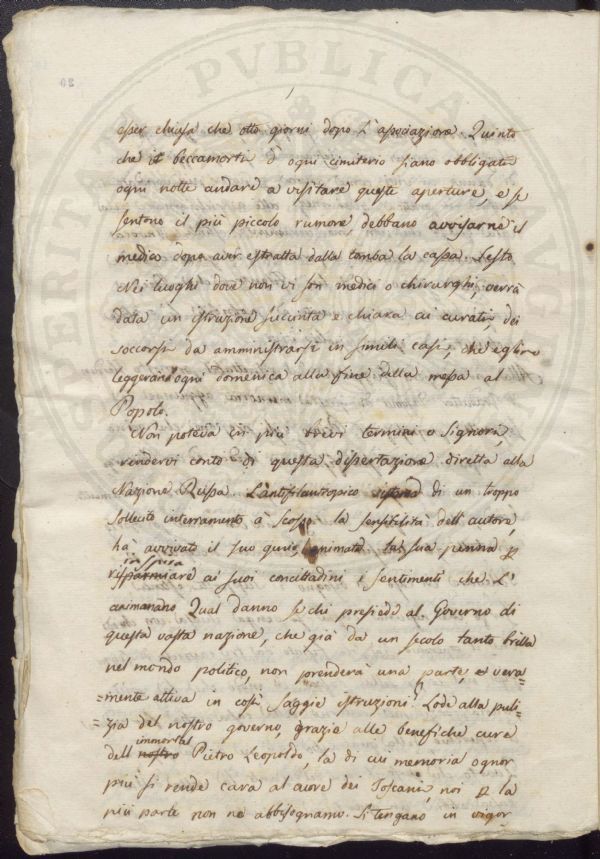 esser chiusa che otto giorni dopo l'associazione. Quinto
che i beccamorti d'ogni cimiterio siano obbligati
ogni notte andare a visitare queste aperture, e se
sentono il più piccolo rumore, debbano avvisarne il
medico dopo aver estratta dalla tomba la cassa. Sesto
Nei luoghi dove non vi son medici o chirurghi, verrà
data un istruzione succinta e chiara ai curati, dei
soccorsi da amministrarsi in simili casi, che eglino
leggeranno ogni domenica alla fine della messa al
Popolo.
Non poteva in più brevi termini o Signori,
rendervi conto di questa dissertazione diretta alla
Nazione Russa. L'antifilantropico sistema di un troppo
sollecito interramento à scosso la sensibilità dell'autore,
hà avvivato il suo genio, animata la sua penna p
inspirare ai suoi concittadini i sentimenti che l'
animavano Qual danno se chi presiede al Governo di
questa vasta nazione, che già da un secolo tanto brilla
nel mondo politico, non prenderà una parte vera=
=mente attiva in così saggie istruzioni! Lode alla puli=
=zia del nostro governo, grazie alle benefiche cure
dell' immortal Pietro Leopoldo, la di cui memoria ognor
più si rende cara al cuore dei Toscani, noi p la
più parte non ne abbisognamo. Si tengano in vigor
PVBLICAE
PROSPERITATI
AVGENDAE